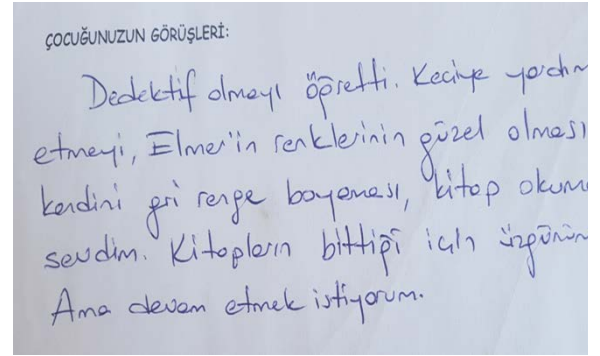 ÇOCUĞUNUZUN GÖRÜŞLERİ:
Dedektif olmayı öğretti. Keçiye yardım
etmeyi, Elmer'in renklerinin güzel olması
kendini gri renge boyaması, kitap okuma
sevdim. Kitapların bittiği için üzgünüm
Ama devam etmek istiyorum.